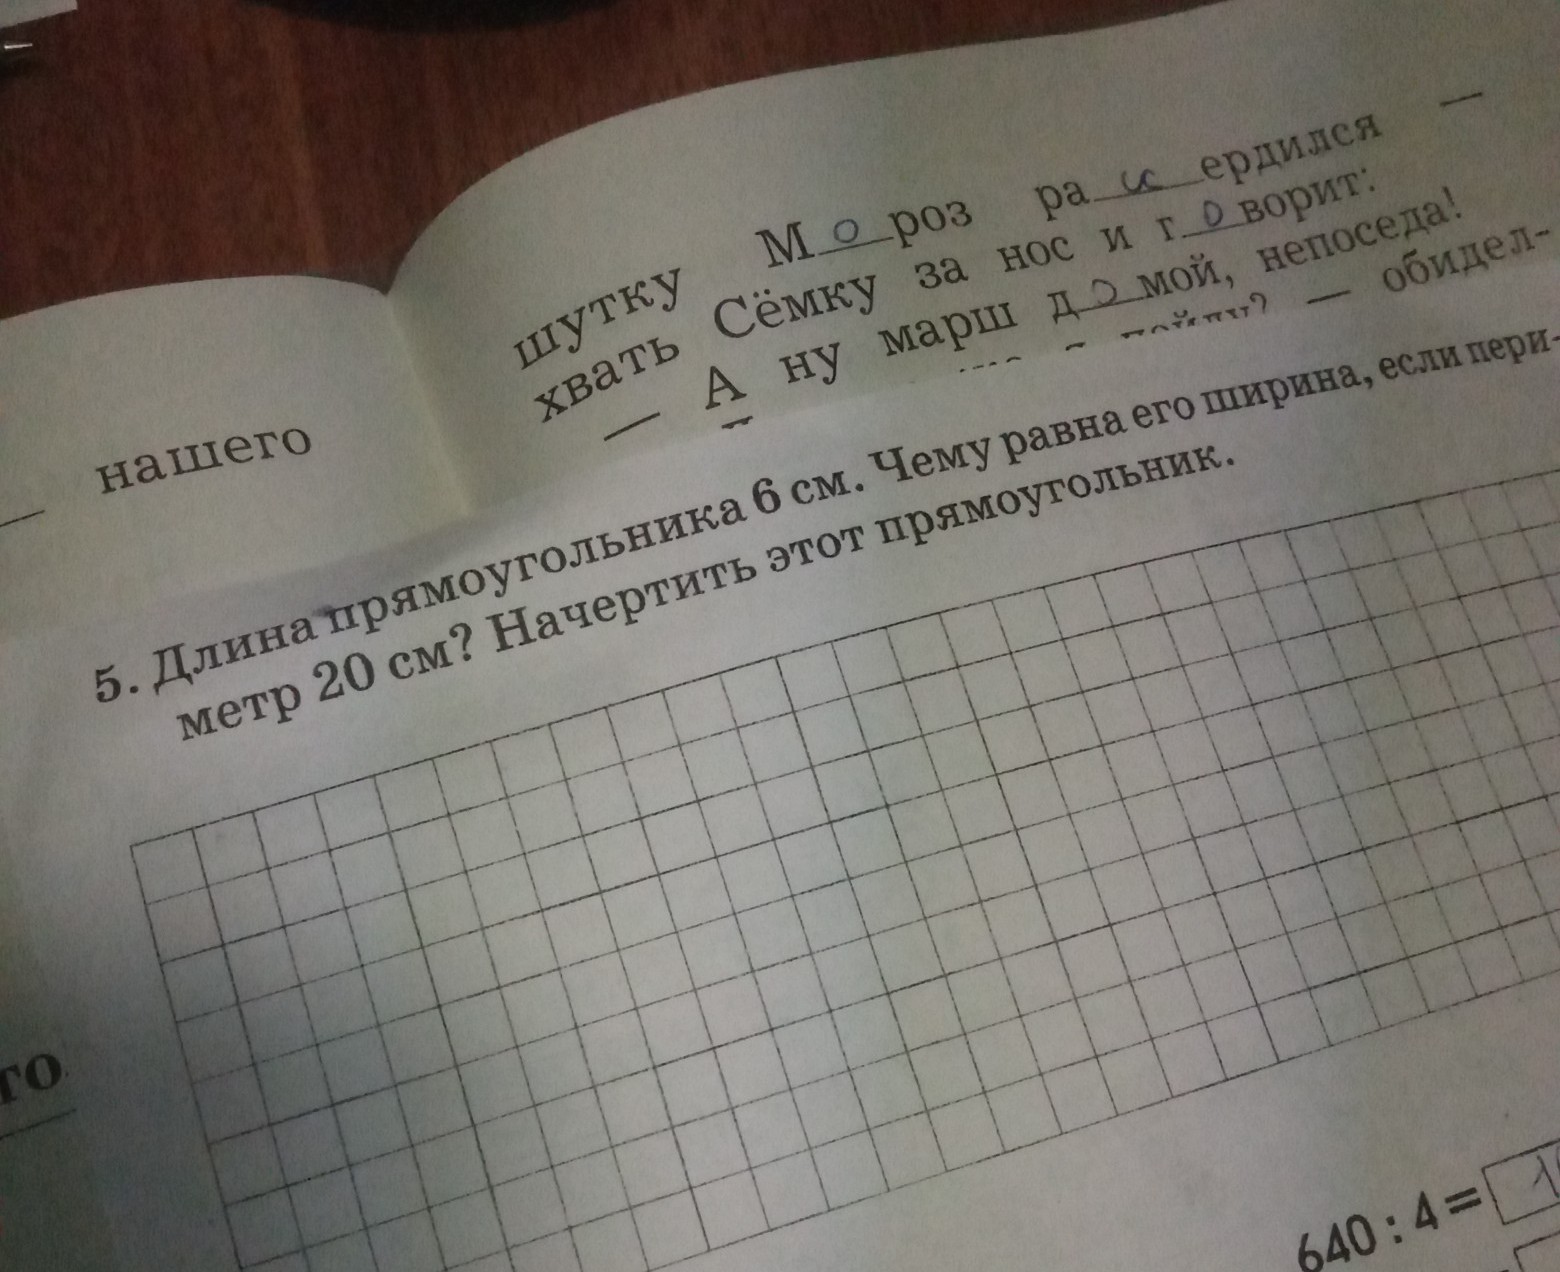 шутку Мороз ра с ердился —
хвать Сёмку за нос и говорит:
— А ну марш домой, непоседа!
— обидел-
нашего
5. Длина прямоугольника 6 см. Чему равна его ширина, если пери-
метр 20 см? Начертить этот прямоугольник.
го
640 : 4 =